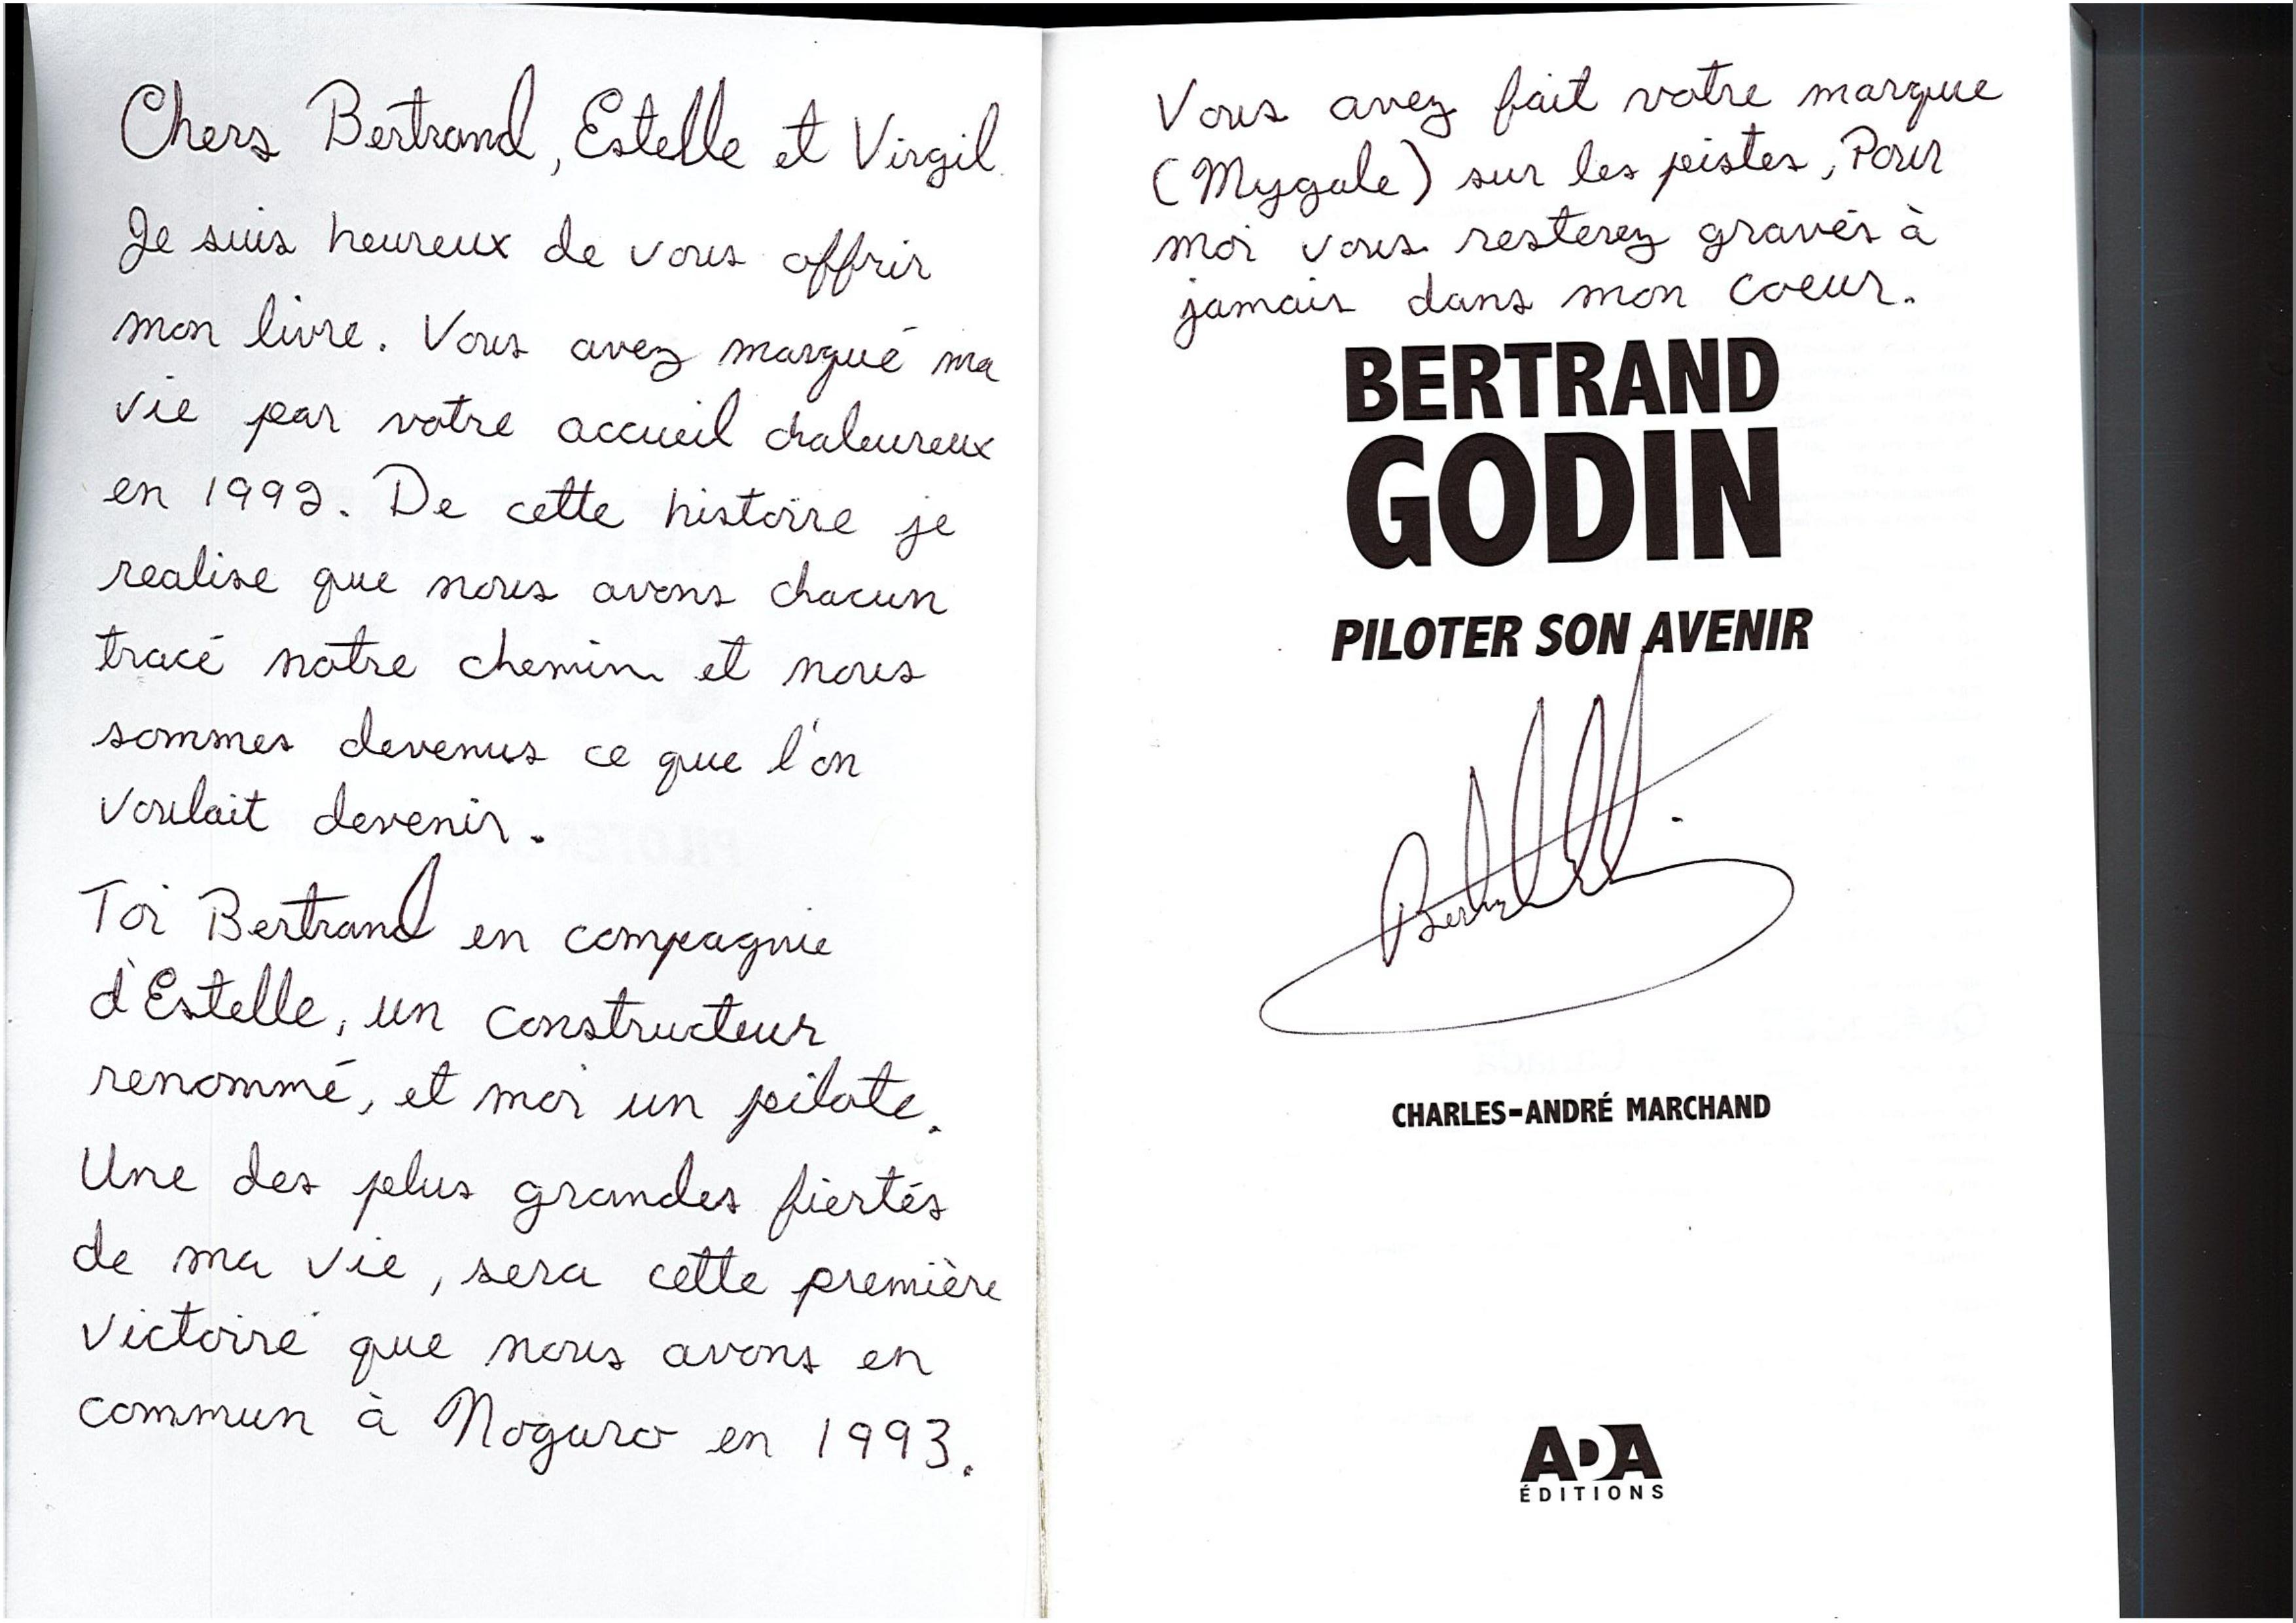 Chers Bertrand, Estelle et Virgil.
Je suis heureux de vous offrir
mon livre. Vous avez marqué ma
vie par votre accueil chaleureux
en 1992. De cette histoire je
realise que nous avons chacun
tracé notre chemin et nous
sommes devenus ce que l'on
voulait devenir.
Toi Bertrand en compagnie
d'Estelle, un constructeur
renommé, et moi un pilote.
Une des plus grandes fiertés
de ma vie, sera cette première
victoire que nous avons en
commun à Nogaro en 1993.
Vous avez fait votre marque
(Mygale) sur les pistes, Pour
moi vous resterez gravés à
jamais dans mon coeur.
BERTRAND
GODIN
PILOTER SON AVENIR
CHARLES-ANDRÉ MARCHAND
ADA
ÉDITIONS